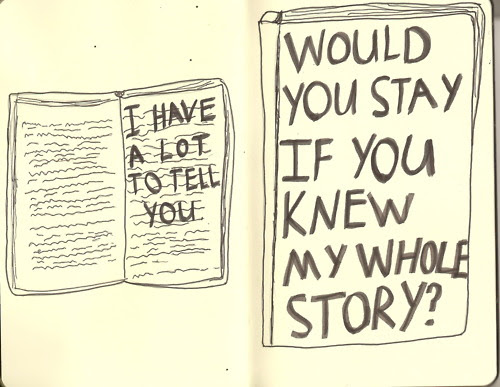 I HAVE
A LOT
TO TELL
YOU
WOULD
YOU STAY
IF YOU
KNEW
MY WHOLE
STORY?